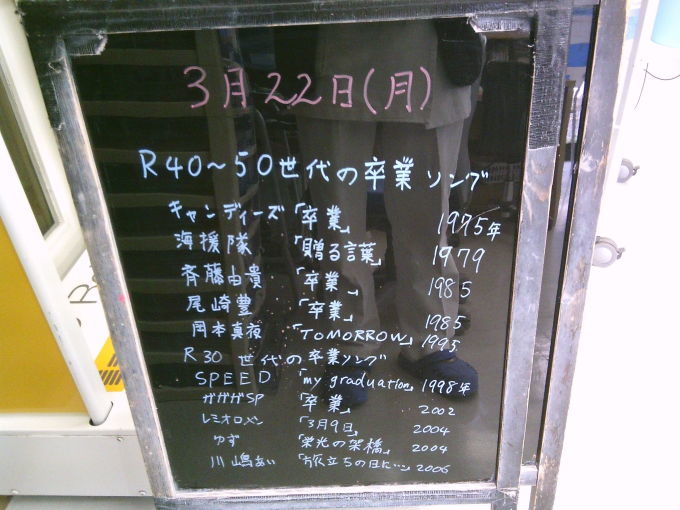 3月22日(月)
R40~50世代の卒業ソング
キャンディーズ「卒業」 1975年
海援隊 「贈る言葉」 1979
斉藤由貴 「卒業」 1985
尾崎豊 「卒業」 1985
岡本真夜 「TOMORROW」 1995
R30世代の卒業ソング
SPEED 「my graduation」 1998年
ガガガSP 「卒業」 2002
レミオロメン 「3月9日」 2004
ゆず 「栄光の架橋」 2004
川嶋あい 「旅立ちの日に…」 2006